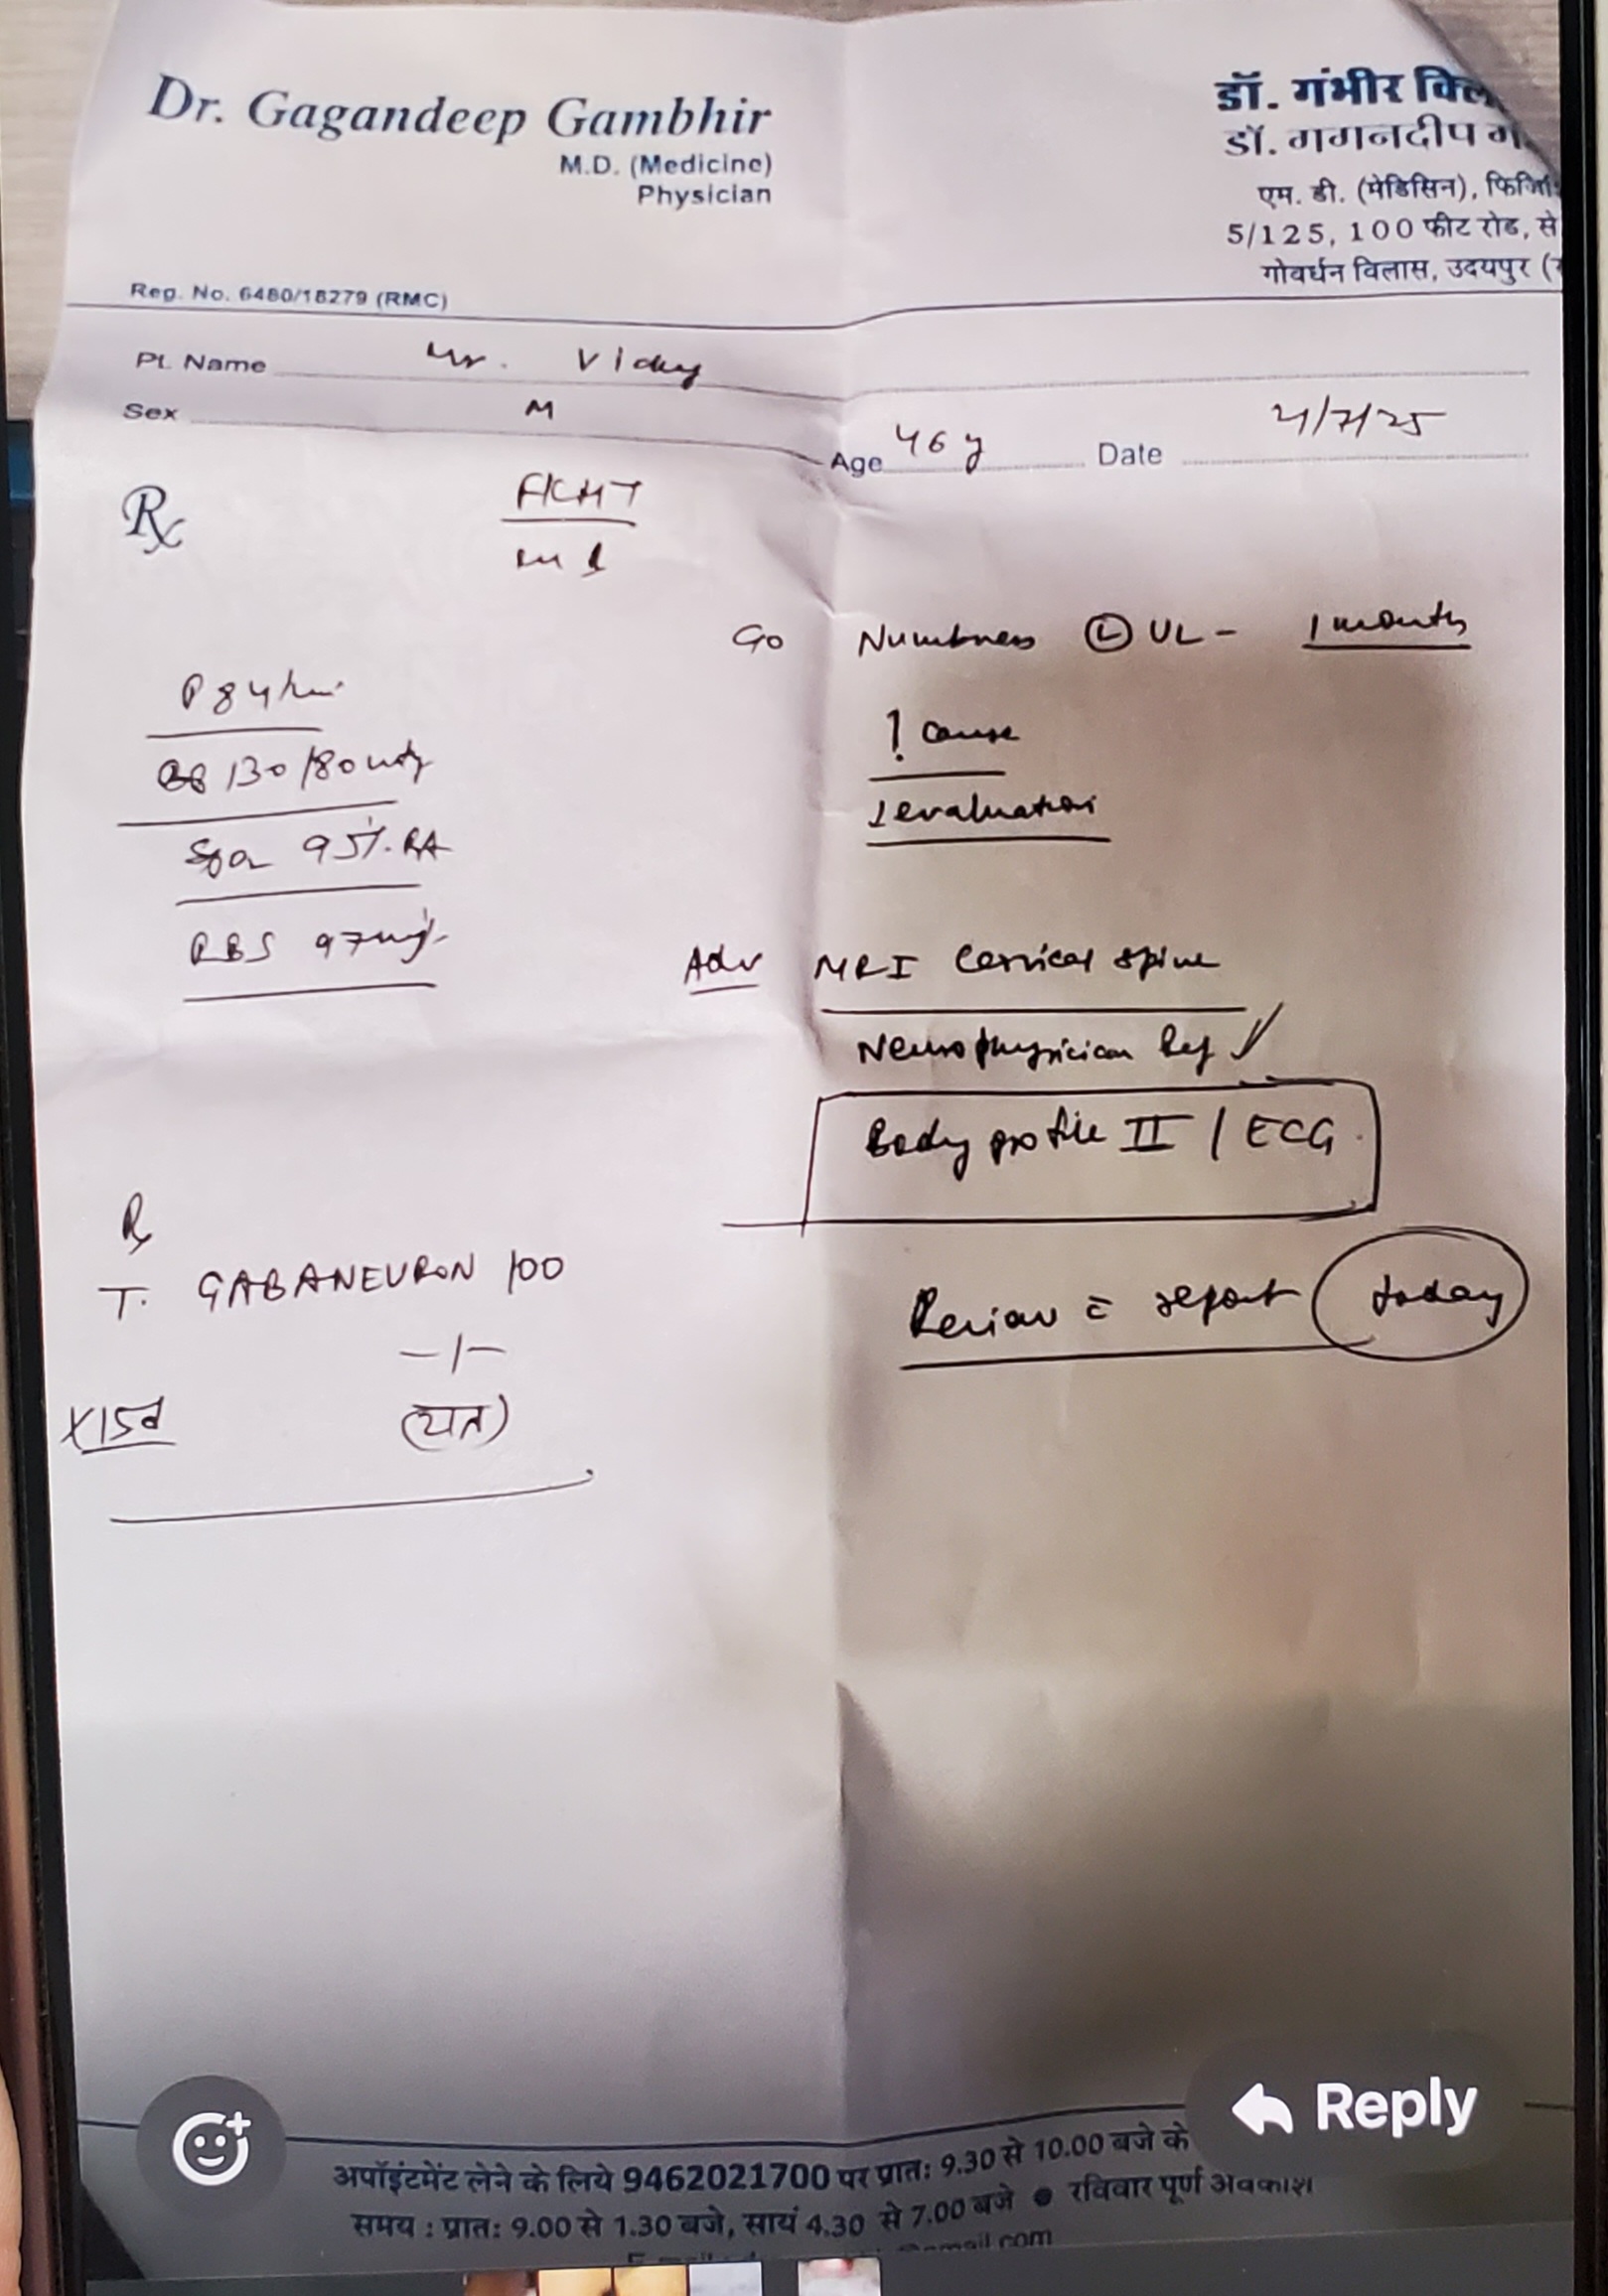 Dr. Gagandeep Gambhir
M.D. (Medicine)
Physician
Reg. No. 6480/18279 (RMC)
डॉ. गंभीर क्लि
डॉ. गगनदीप ग
एम. डी. (मेडिसिन), फिजि
5/125, 100 फीट रोड, से
गोवर्धन विलास, उदयपुर (
Pt. Name Mr. Vicky
Sex M
Age 46 y Date
Rx
C/o Numbness (L) UL - 1 month
P 84/min
? cause
BP 130/80 mmHg
evaluation
SpO2 95% RA
RBS 97mg%
Adv MRI Cervical spine
Neurophysician Ref ✓
Body profile II / ECG
Rx
T. GABANEURON 100
Review c̄ report today
-/-
X15d
Reply
अपॉइंटमेंट लेने के लिये 9462021700 पर प्रात: 9.30 से 10.00 बजे के
समय : प्रात: 9.00 से 1.30 बजे, सायं 4.30 से 7.00 बजे ● रविवार पूर्ण अवकाश
@gmail.com